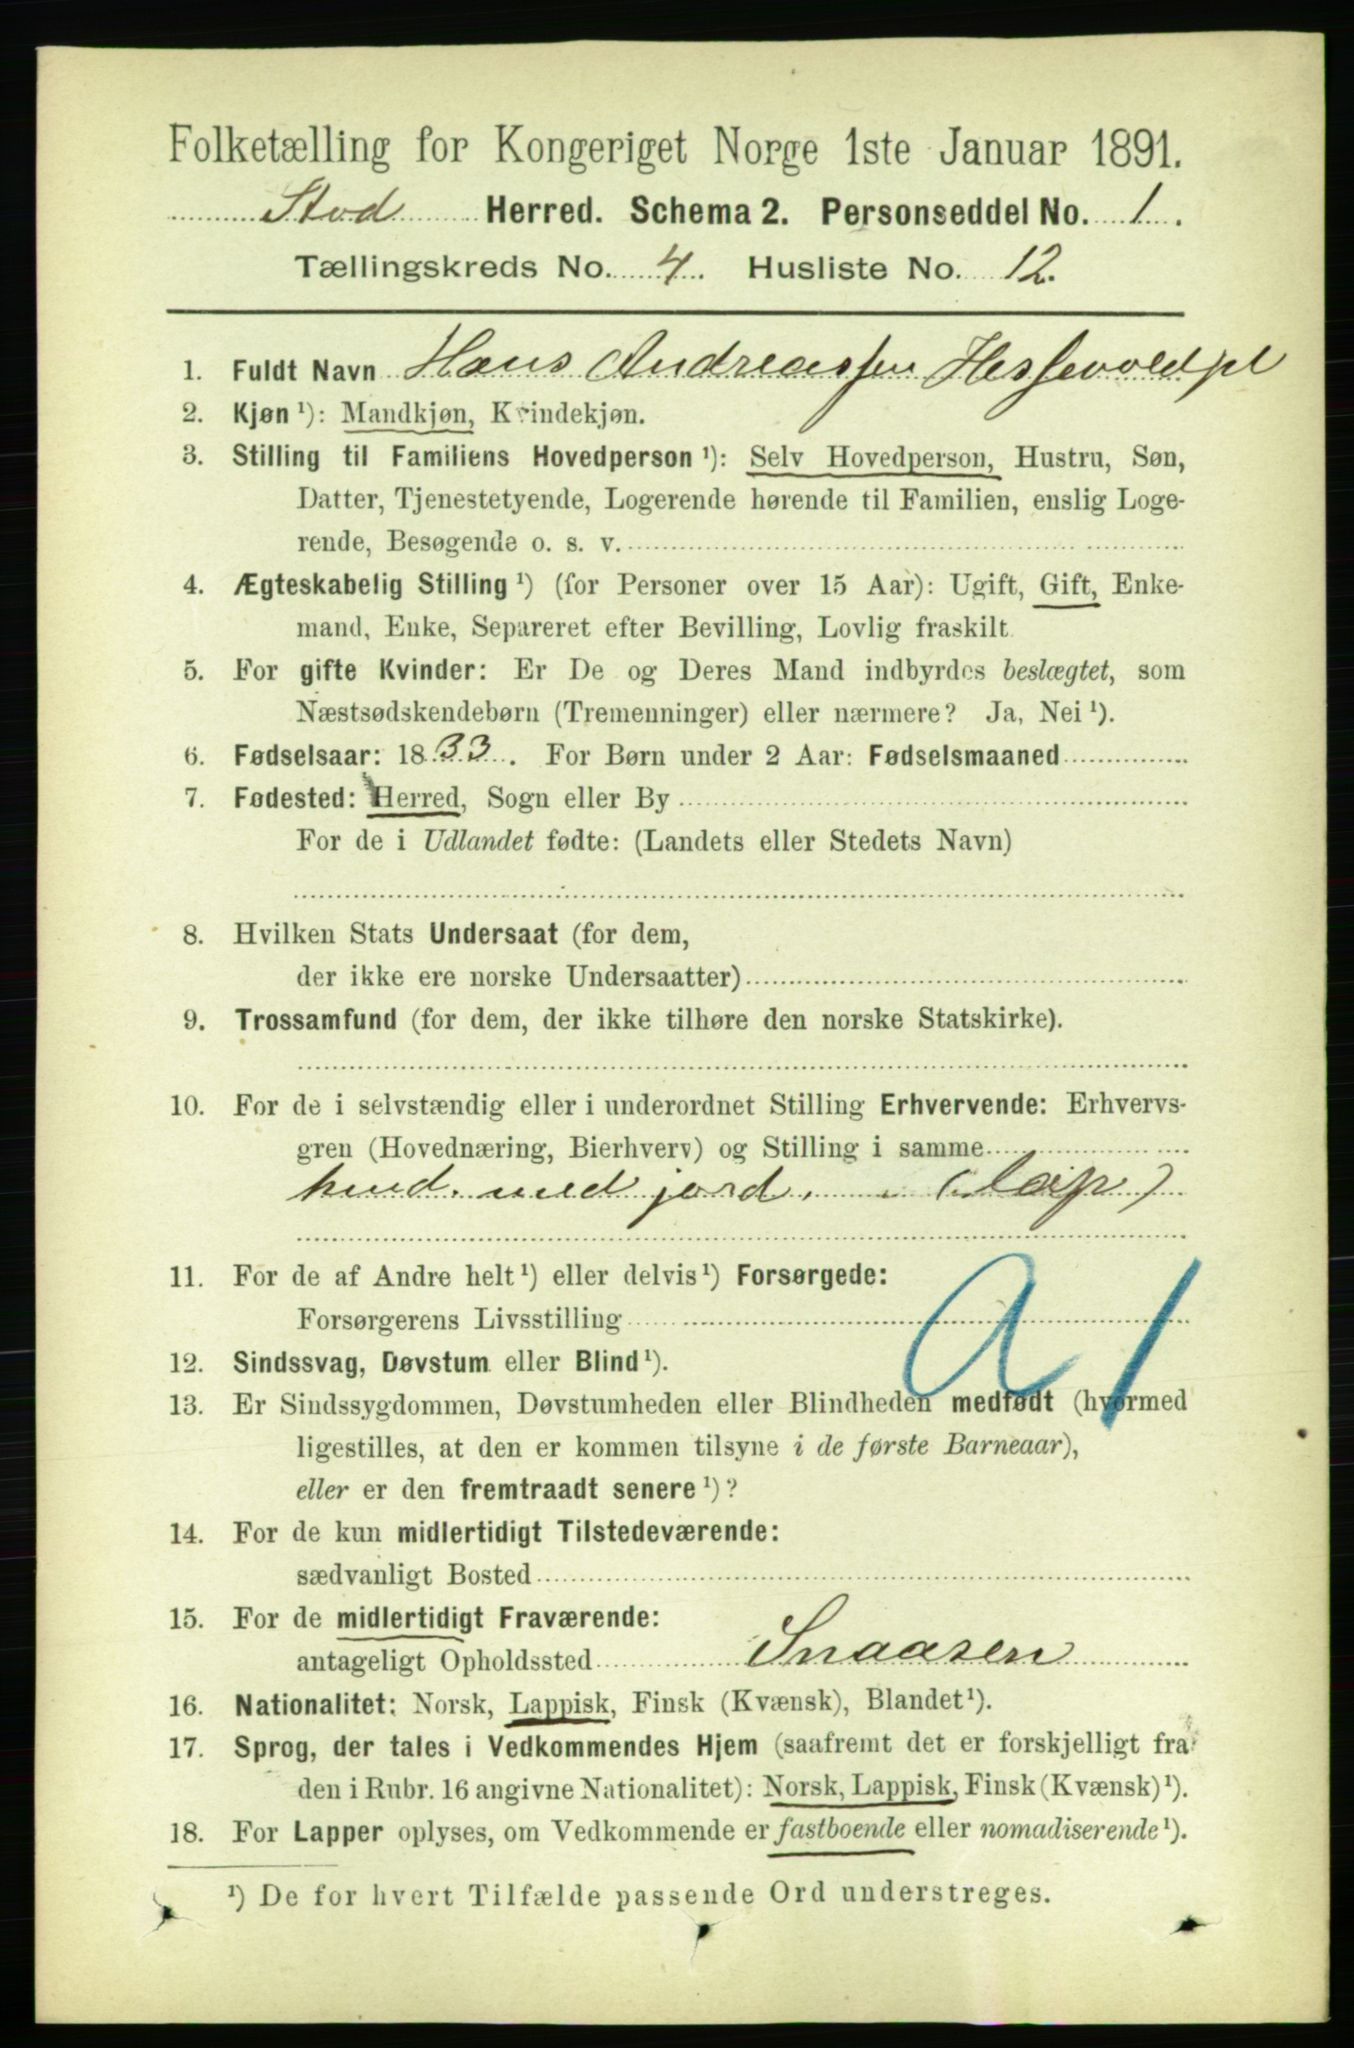 Folketælling for Kongeriget Norge 1ste Januar 1891.
Stod Herred. Schema 2. Personseddel No. 1.
Tællingskreds No. 4. Husliste No. 12.
1. Fuldt Navn Hans Andreassen Hessevoldpl
2. Kjøn ¹): Mandkjøn, Kvindekjøn.
3. Stilling til Familiens Hovedperson ¹): Selv Hovedperson, Hustru, Søn,
Datter, Tjenestetyende, Logerende hørende til Familien, enslig Loge-
rende, Besøgende o. s. v.
4. Ægteskabelig Stilling ¹) (for Personer over 15 Aar): Ugift, Gift, Enke-
mand, Enke, Separeret efter Bevilling, Lovlig fraskilt
5. For gifte Kvinder: Er De og Deres Mand indbyrdes beslægtet, som
Næstsødskendebørn (Tremenninger) eller nærmere? Ja, Nei ¹).
6. Fødselsaar: 1833. For Børn under 2 Aar: Fødselsmaaned
7. Fødested: Herred, Sogn eller By
For de i Udlandet fødte: (Landets eller Stedets Navn)
8. Hvilken Stats Undersaat (for dem,
der ikke ere norske Undersaatter)
9. Trossamfund (for dem, der ikke tilhøre den norske Statskirke).
10. For de i selvstændig eller i underordnet Stilling Erhvervende: Erhvervs-
gren (Hovednæring, Bierhverv) og Stilling i samme
husd. med jord. (Lap)
11. For de af Andre helt ¹) eller delvis ¹) Forsørgede:
Forsørgerens Livsstilling
A 1
12. Sindssvag, Døvstum eller Blind ¹).
13. Er Sindssygdommen, Døvstumheden eller Blindheden medfødt (hvormed
ligestilles, at den er kommen tilsyne i de første Barneaar),
eller er den fremtraadt senere ¹)?
14. For de kun midlertidigt Tilstedeværende:
sædvanligt Bosted
15. For de midlertidigt Fraværende:
antageligt Opholdssted Snaasen
16. Nationalitet: Norsk, Lappisk, Finsk (Kvænsk), Blandet ¹).
17. Sprog, der tales i Vedkommendes Hjem (saafremt det er forskjelligt fra
den i Rubr. 16 angivne Nationalitet): Norsk, Lappisk, Finsk (Kvænsk) ¹).
18. For Lapper oplyses, om Vedkommende er fastboende eller nomadiserende ¹).
¹) De for hvert Tilfælde passende Ord understreges.